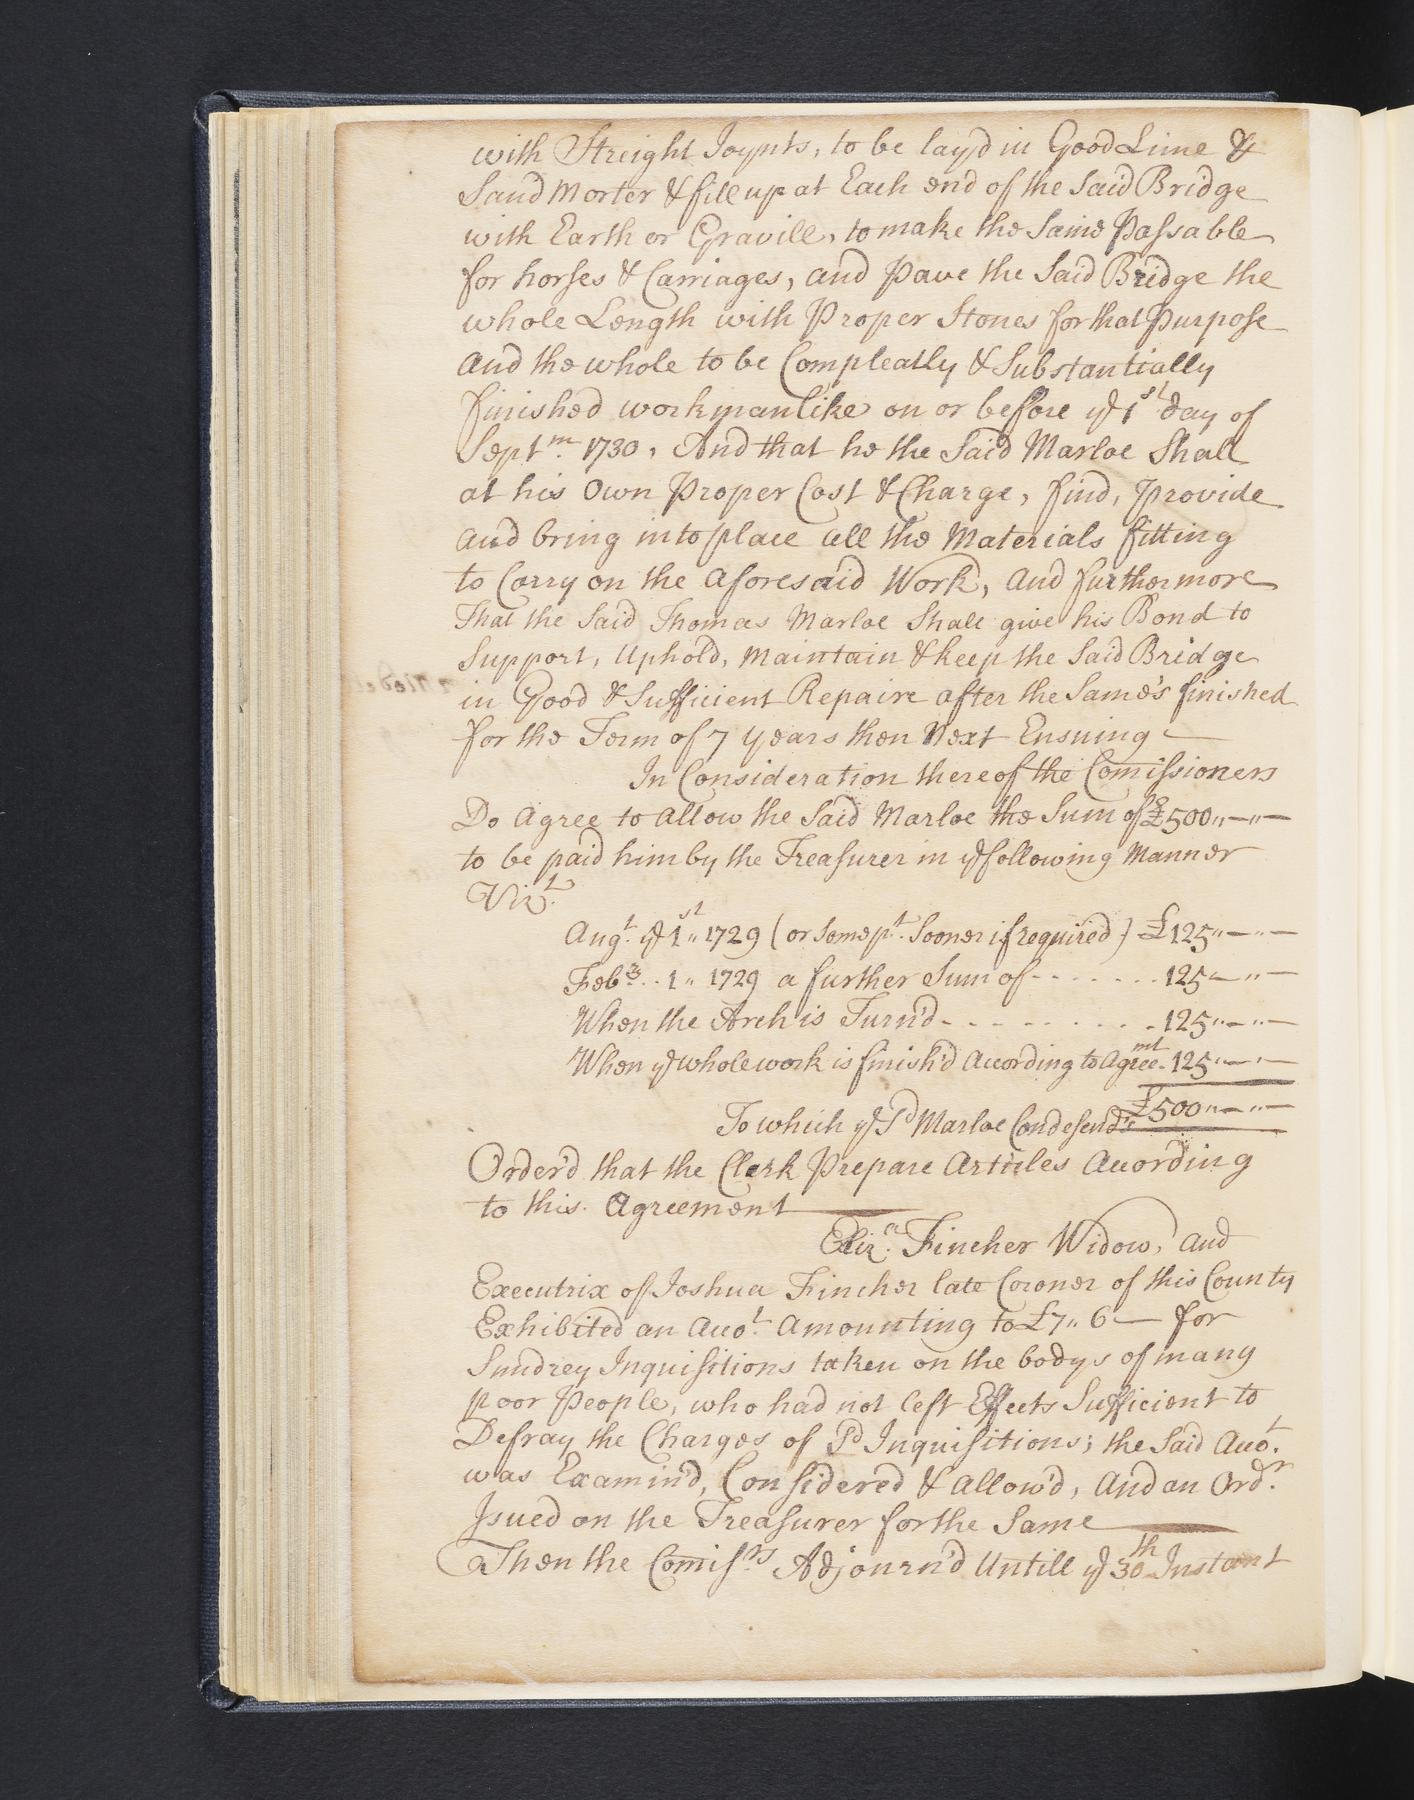 with Streight Joynts, to be lay'd in Good Lime &
Sand Morter & fill up at Each end of the Said Bridge
with Earth or Gravill, to make the Same Passable
for horses & Carriages, and Pave the Said Bridge the
whole Length with Proper Stones for that Purpose
and the whole to be Compleatly & Substantially
finished workmanlike on or before ye 1st day of
Septm 1730, And that he the Said Marloe Shall
at his Own Proper Cost & Charge, find, provide
and bring into place all the Materials fitting
to Carry on the aforesaid Work, and furthermore
That the Said Thomas Marloe Shall give his Bond to
Support, Uphold, Maintain & keep the Said Bridge
in Good & Sufficient Repaire after the Same's finished
for the Term of 7 years then Next Ensuing
In Consideration thereof the Comissioners
Do Agree to allow the Said Marloe the Sum of £500"—"—
to be paid him by the Treasurer in ye following Manner
Vizt
Augt ye 1st " 1729 (or Some pt Sooner if required) £125"—"—
Febry .. 1 " 1729 a further Sum of - - - - - - 125"—"—
When the Arch is Turn'd - - - - - - - - - 125"—"—
When ye whole work is finish'd According to Agreemt - 125"—"—
£500"—"—
To which ye Sd Marloe Condesend's
Order'd that the Clerk Prepare Articles According
to this Agreement
Eliza Fincher Widow, and
Executrix of Joshua Fincher late Coroner of this County
Exhibited an Accot Amounting to £7 " 6 — for
Sundrey Inquisitions taken on the bodys of many
poor People, who had not left Effects Sufficient to
Defray the Charges of Sd Inquisitions; the Said Accot
was Examin'd, Considered & allow'd, And an Ordr
Isued on the Treasurer for the Same
Then the Comisrs Adjourn'd Untill ye 30th Instant